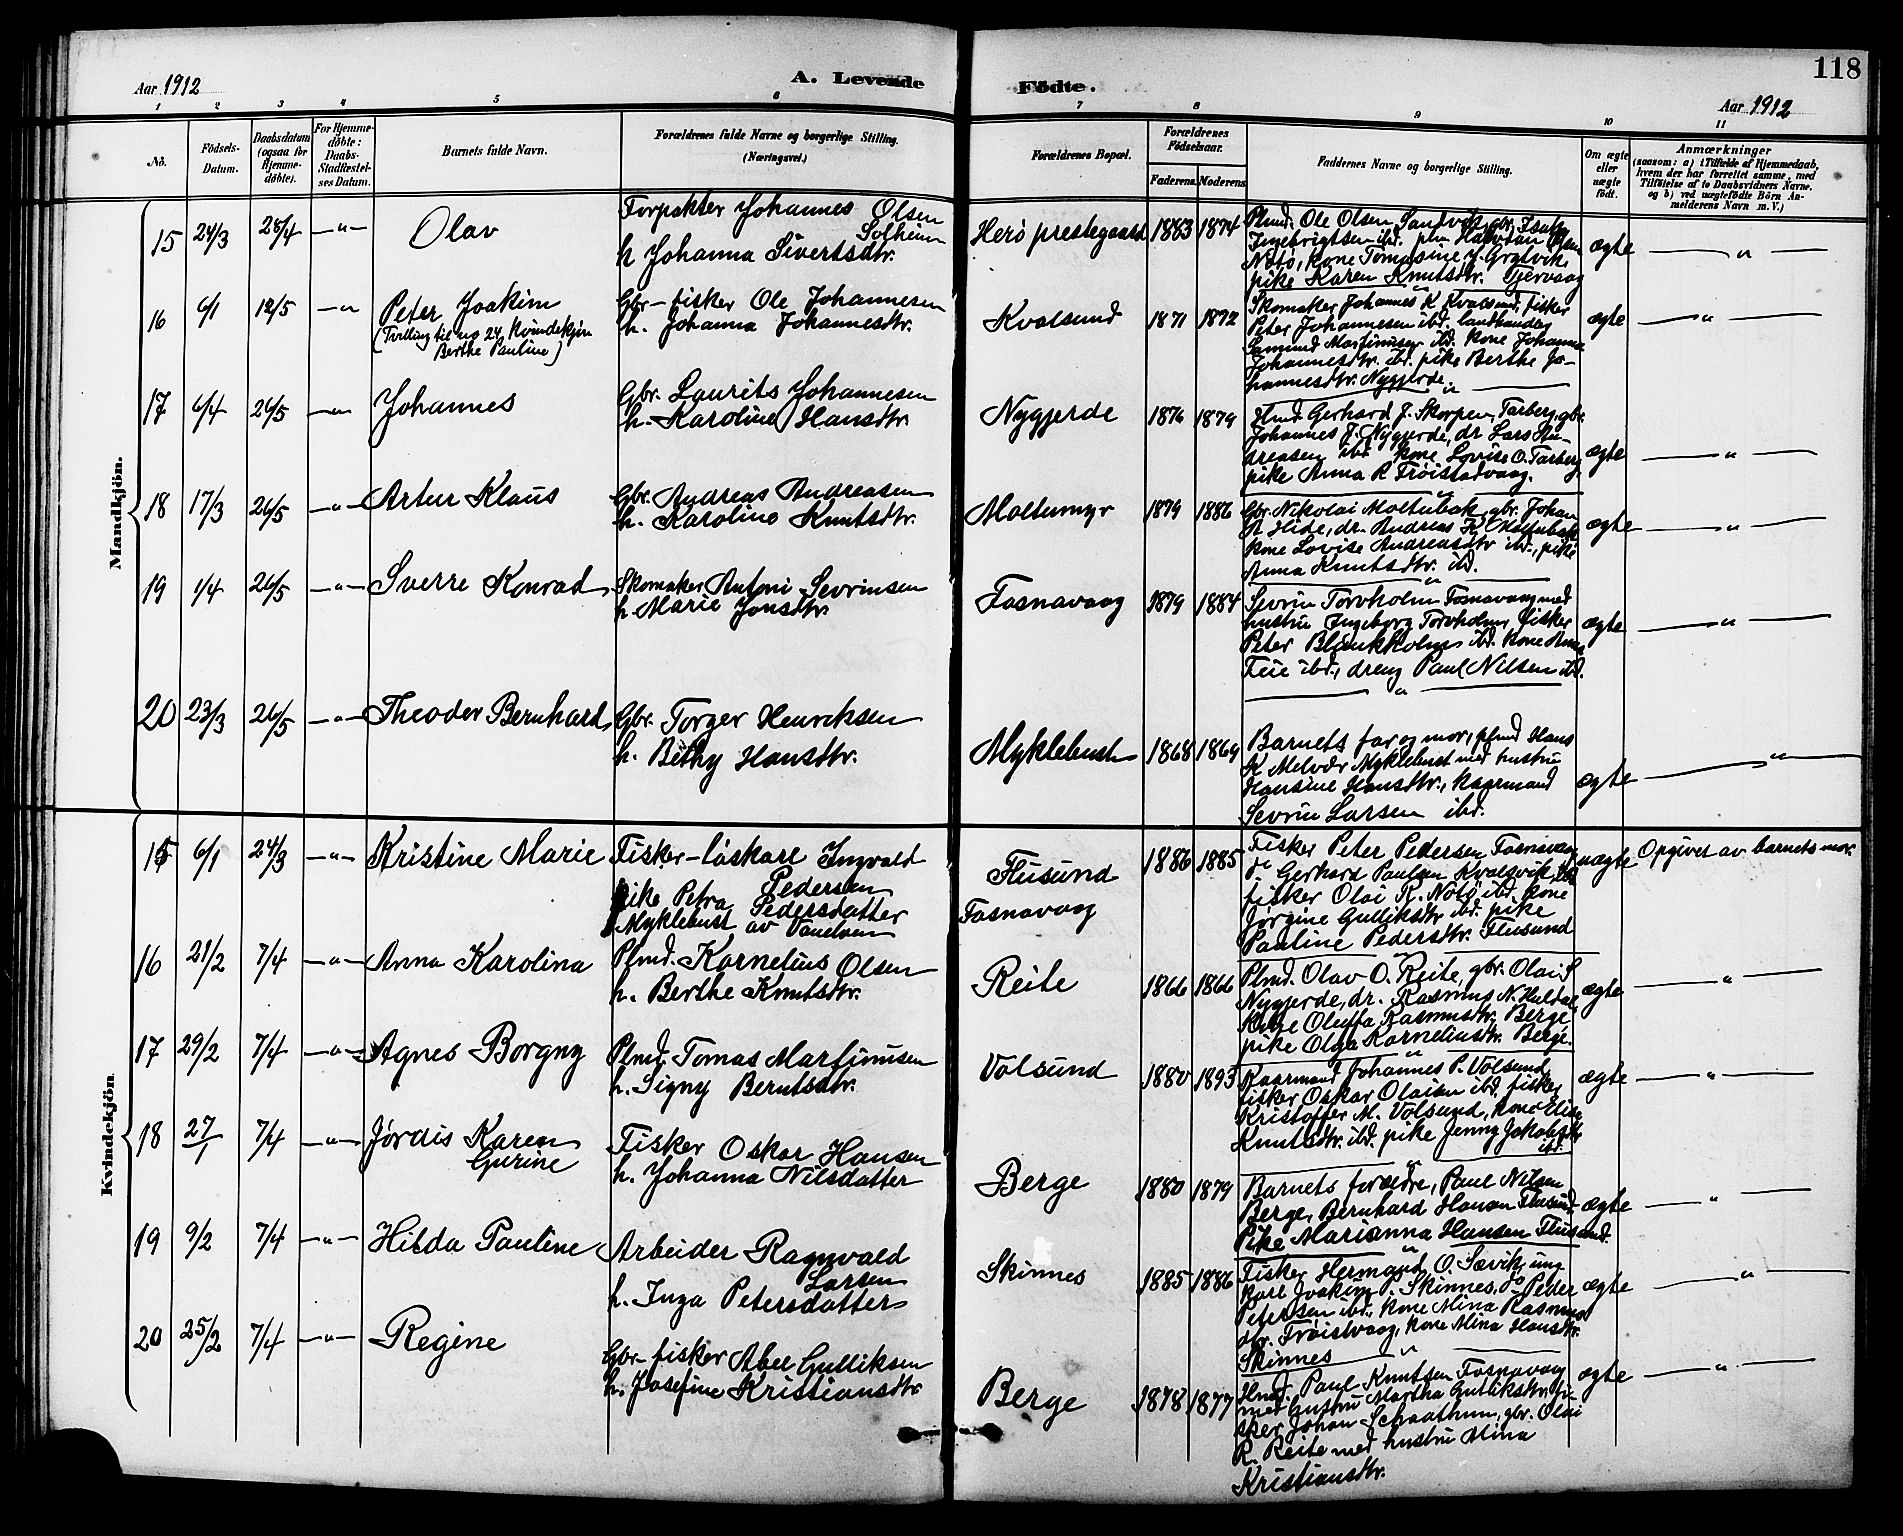 118
Aar 1912
A. Levende
Fødte.
Aar 1912
1 2 3 4 5 6 7 8 9 10 11
No.
Födsels-
Datum.
Daabsdatum
(ogsaa for
Hjemme-
døbte).
For Hjemme-
døbte:
Daabs-
Stadfæstel-
ses Datum.
Barnets fulde Navn.
Forældrenes fulde Navne og borgerlige Stilling.
(Næringsvei.)
Forældrenes Bopæl.
Forældrenes
Födselsaar.
Faderens.
Moderens.
Faddernes Navne og borgerlige Stilling.
Om ægte
eller
uægte
født.
Anmærkninger
(saasom: a) i Tilfælde af Hjemmedaab,
hvem der har forrettet samme, med
Tilføielse af to Daabsvidners Navne,
og b) ved uægtefødte Börn An-
melderens Navn m. V.)
Mandkjön.
15 24/3 28/4 —"— Olav
Forpakter Johannes Olsen
Solheim
h Johanna Sivertsdtr.
Herø prestegaard 1883 1874
Plmd. Ole Olsen Sandvik, gbr. Isak
Ingebrigtsen ibd. plm Halvdan Olsen
Nøtø, kone Tomasine J. Grytvik,
pike Karen Knutsdtr. Tjervaag
ægte —"—
16 6/1 12/5 —"— Peter Joakim
(Tvilling til no 24 Kvindekjøn
Berthe Pauline)
Gbr-fisker Ole Johannesen
h. Johanna Johannesdtr.
Kvalsund 1871 1872
Skomaker Johannes K Kvalsund, fisker
Peter Johannesen ibd. landhandler
Samund Martinusen ibd. kone Johanna
Johannesdtr. ibd. pike Berthe Jo-
hannesdtr. Nygjerde.
ægte —"—
17 6/4 26/5 —"— Johannes
Gbr. Laurits Johannesen
h. Karoline Hansdtr.
Nygjerde 1876 1879
Hmd. Gerhard J. Skorpen, Tarberg, gbr.
Johannes J. Nygjerde, dr Lars An-
dreasen ibd. kone Lovise O. Tarberg
pike Anna R. Frøistadvaag.
ægte —"—
18 17/3 26/5 —"— Artur Klaus
Gbr. Andreas Andreasen
h. Karoline Knutsdtr.
Moltumyr 1879 1886
Gbr. Nikolai Moltubak, gbr. Johan
N Hide, dr. Andreas K Moltubak
kone Lovise Andreasdtr ibd., pike
Anna Knutsdtr. ibd.
ægte —"—
19 1/4 26/5 —"— Sverre Konrad
Skomaker Antoni Sevrinsen
h. Marie Jonsdtr.
Fosnavaag 1879 1884
Sevrin Torvholm Fosnavaag med
hustru Ingeborg Torvholm, fisker
Peter Blankholm ibd. kone Anna
Furie ibd., dreng Paul Nilsen ibd.
ægte —"—
20 23/3 26/5 —"— Theodor Bernhard
Gbr. Torger Henriksen
h. Bethy Hansdtr.
Myklebust 1868 1869
Barnets far og mor, plmd Hans
K Melvær Myklebust med hustru
Hansine Hansdtr., kaarmand
Sevrin Larsen ibd.
ægte —"—
Kvindekjön
15 6/1 24/3 —"— Kristine Marie
Fisker-løskare Ingvald
Pedersen
pike Petra Pedersdatter
Myklebust av Vanelven
Flusund
Fosnavaag
1886 1885
Fisker Peter Pedersen Fosnavaag
do Gerhard Paulsen Kvalsvik ibd
fisker Olai R. Nøtø ibd. kone
Jørgine Gulliksdtr ibd. pike
Pauline Pedersdtr. Flusund
uægte Opgivet av barnets mor.
16 21/2 7/4 —"— Anna Karolina
Plmd. Kornelius Olsen
h. Berthe Knutsdtr.
Reite 1866 1866
Plmd. Olav O. Reite, gbr. Olai S
Nygjerde, dr. Rasmus N. Huldal
pike Oluffa Rasmusdtr. Berge
pike Olga Korneliusdtr. Berge.
ægte —"—
17 29/2 7/4 —"— Agnes Borgny
Plmd. Tomas Martinusen
h. Signy Berntsdtr.
Volsund 1880 1893
Kaarmand Johannes P. Volsund
fisker Oskar Olaisen ibd. fisker
Kristoffer M. Volsund, kone Elise
Knutsdtr. ibd. pike Jenny Jakobsdtr
ibd.
ægte —"—
18 27/1 7/4 —"— Jørdis Karen
Gurine
Fisker Oskar Hansen
h. Johanna Nilsdatter
Berge 1880 1879
Barnets forældre, Paul Nilsen
Berge, Bernhard Hansen Flusund
Pike Marianna Hansen Flusund.
ægte —"—
19 9/2 7/4 —"— Hilda Pauline
Arbeider Ragnvald
Larsen
h. Inga Petersdatter
Skinnes 1885 1886
Fisker Hermand O. Sævik, ung-
karl Joakim P. Skinnes, do Peder
Petersen ibd., kone Mina Rasmus-
dtr. Frøistvaag, kone Mina Hansdtr.
Skinnes
ægte —"—
20 25/2 7/4 —"— Regine
Gbr-fisker Abel Gulliksen
h. Josefine Kristiansdtr
Berge 1878 1877
Hmd. Paul Knutsen Fosnavaag
med hustru Martha Gulliksdtr, fi-
sker Johan Schaathun, gbr. Olai
R. Reite med hustru Mina
Kristiansdtr.
ægte —"—